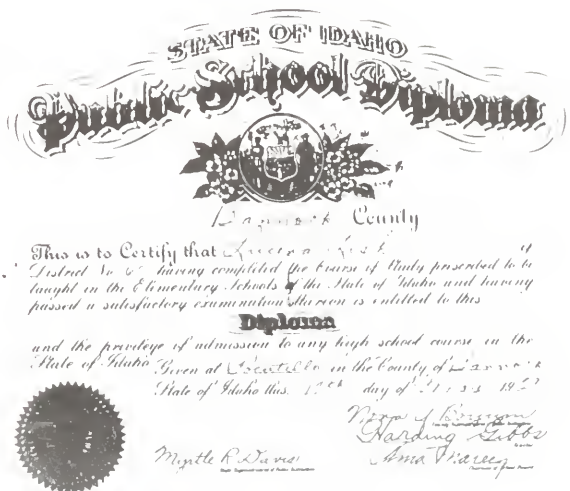 STATE OF IDAHO
Public School Diploma
Bannock County
This is to Certify that of
District No. 6 having completed the Course of Study prescribed to be
taught in the Elementary Schools of the State of Idaho and having
passed a satisfactory examination thereon is entitled to this
Diploma
and the privilege of admission to any high school course in the
State of Idaho Given at Pocatello in the County of Bannock
State of Idaho this day of 19
Harding Gibbs
Myrtle R. Davis